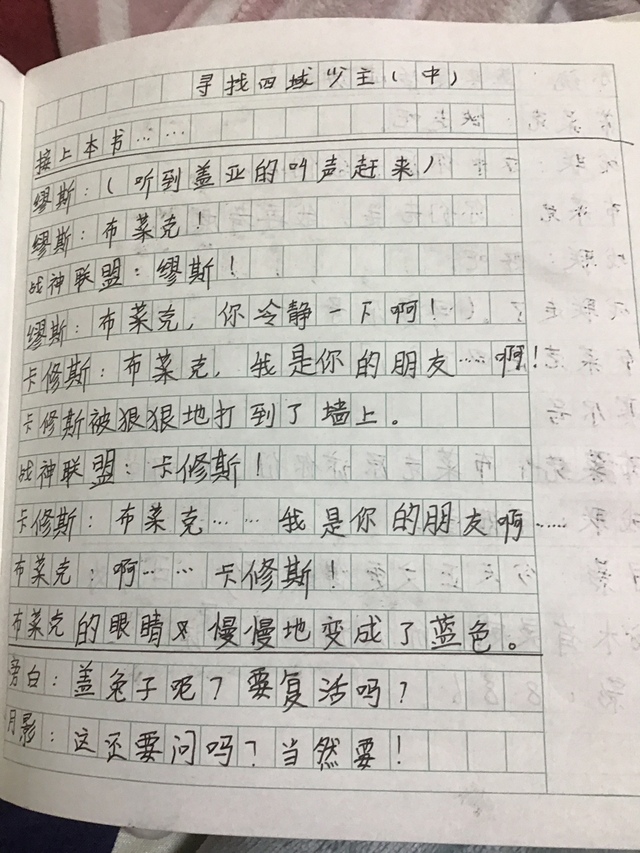 寻找四域少主(中)
接上本书……
缪斯:(听到盖亚的叫声赶来)
缪斯:布莱克!
战神联盟:缪斯!
缪斯:布莱克,你冷静一下啊!
卡修斯:布莱克,我是你的朋友……啊!
卡修斯被狠狠地打到了墙上。
战神联盟:卡修斯!
卡修斯:布莱克……我是你的朋友啊……
布莱克:啊……卡修斯!
布莱克的眼睛又慢慢地变成了蓝色。
旁白:盖兔子呢?要复活吗?
月影:这还要问吗?当然要!